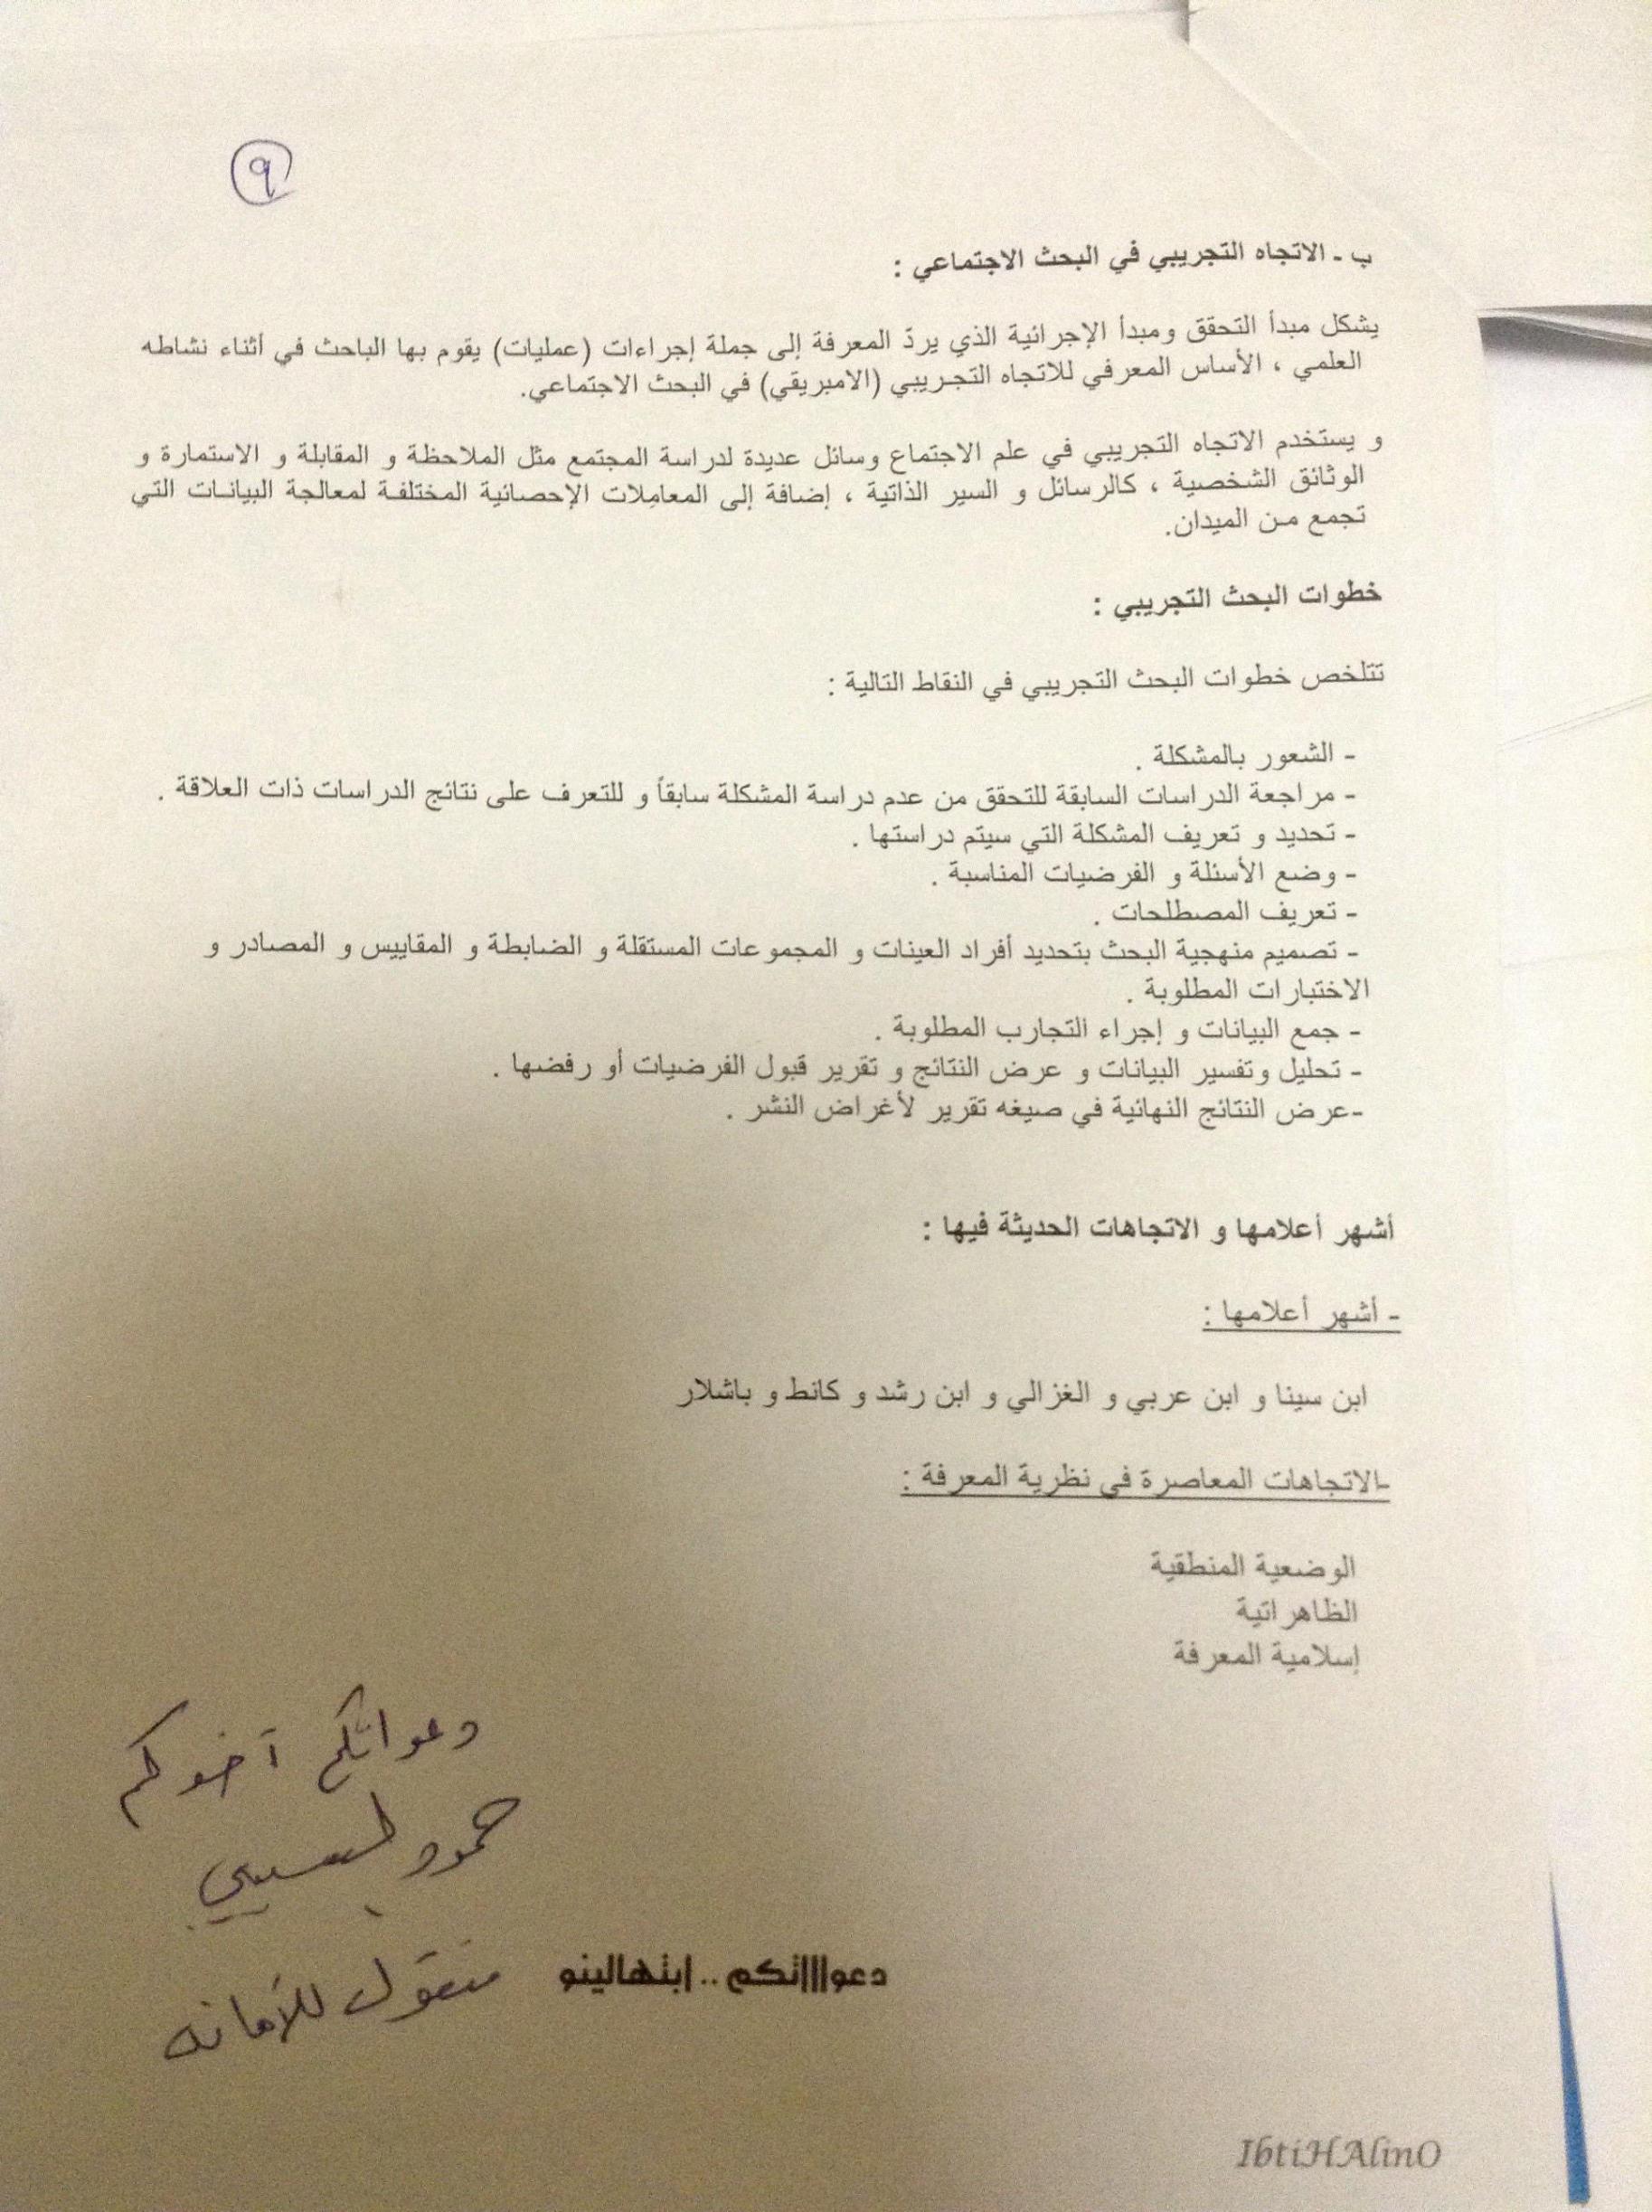 ٩
ب - الاتجاه التجريبي في البحث الاجتماعي :
يشكل مبدأ التحقق ومبدأ الإجرائية الذي يردّ المعرفة إلى جملة إجراءات (عمليات) يقوم بها الباحث في أثناء نشاطه
العلمي ، الأساس المعرفي للاتجاه التجريبي (الامبريقي) في البحث الاجتماعي.
و يستخدم الاتجاه التجريبي في علم الاجتماع وسائل عديدة لدراسة المجتمع مثل الملاحظة و المقابلة و الاستمارة و
الوثائق الشخصية ، كالرسائل و السير الذاتية ، إضافة إلى المعامِلات الإحصائية المختلفة لمعالجة البيانات التي
تجمع من الميدان.
خطوات البحث التجريبي :
تتلخص خطوات البحث التجريبي في النقاط التالية :
- الشعور بالمشكلة .
- مراجعة الدراسات السابقة للتحقق من عدم دراسة المشكلة سابقاً و للتعرف على نتائج الدراسات ذات العلاقة .
- تحديد و تعريف المشكلة التي سيتم دراستها .
- وضع الأسئلة و الفرضيات المناسبة .
- تعريف المصطلحات .
- تصميم منهجية البحث بتحديد أفراد العينات و المجموعات المستقلة و الضابطة و المقاييس و المصادر و
الاختبارات المطلوبة .
- جمع البيانات و إجراء التجارب المطلوبة .
- تحليل وتفسير البيانات و عرض النتائج و تقرير قبول الفرضيات أو رفضها .
-عرض النتائج النهائية في صيغه تقرير لأغراض النشر .
أشهر أعلامها و الاتجاهات الحديثة فيها :
- أشهر أعلامها :
ابن سينا و ابن عربي و الغزالي و ابن رشد و كانط و باشلار
-الاتجاهات المعاصرة في نظرية المعرفة :
الوضعية المنطقية
الظاهراتية
إسلامية المعرفة
دعواتكم أخوكم
حمود
دعوااااتكم .. إبتهالينو
منقول للأمانه
IbtiHAlinO